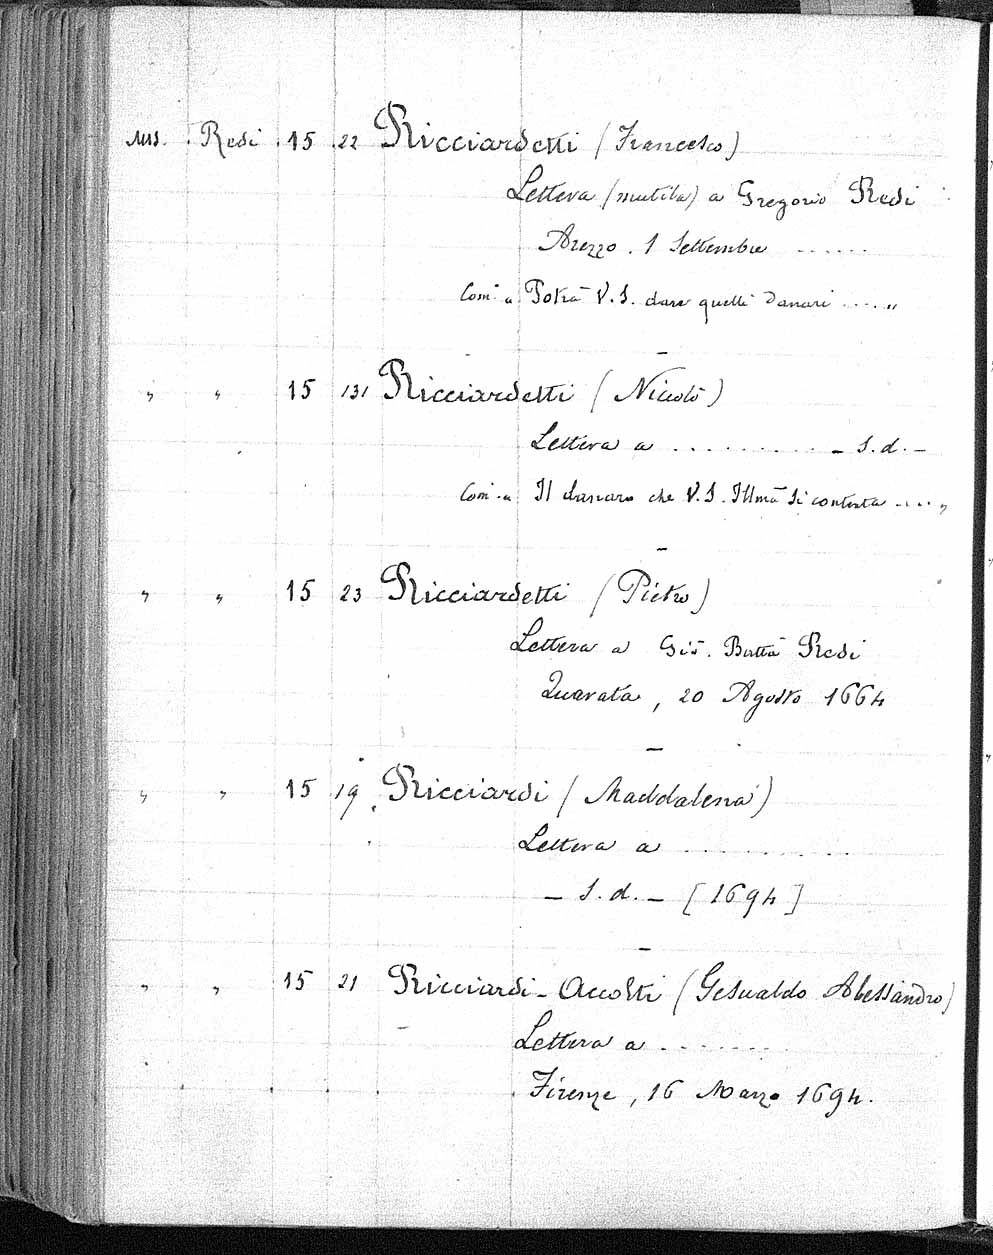 Mss. Redi 15 22 Ricciardetti (Francesco)
Lettera (mutila) a Gregorio Redi
Arezzo. 1 Settembre ......
Com. a Potrà V. S. dare quelli danari ....."
" " 15 131 Ricciardetti (Niccolò)
Lettera a .......... - S.d. -
Com. a Il danaro che V. S. Illma si contenta ...."
" " 15 23 Ricciardetti (Pietro)
Lettera a Gio. Batta Redi
Quarata, 20 Agosto 1664
" " 15 19 Ricciardi (Maddalena)
Lettera a .........
- S. d. - [1694]
" " 15 21 Ricciardi-Accolti (Gesualdo Alessandro)
Lettera a .......
Firenze, 16 Marzo 1694.